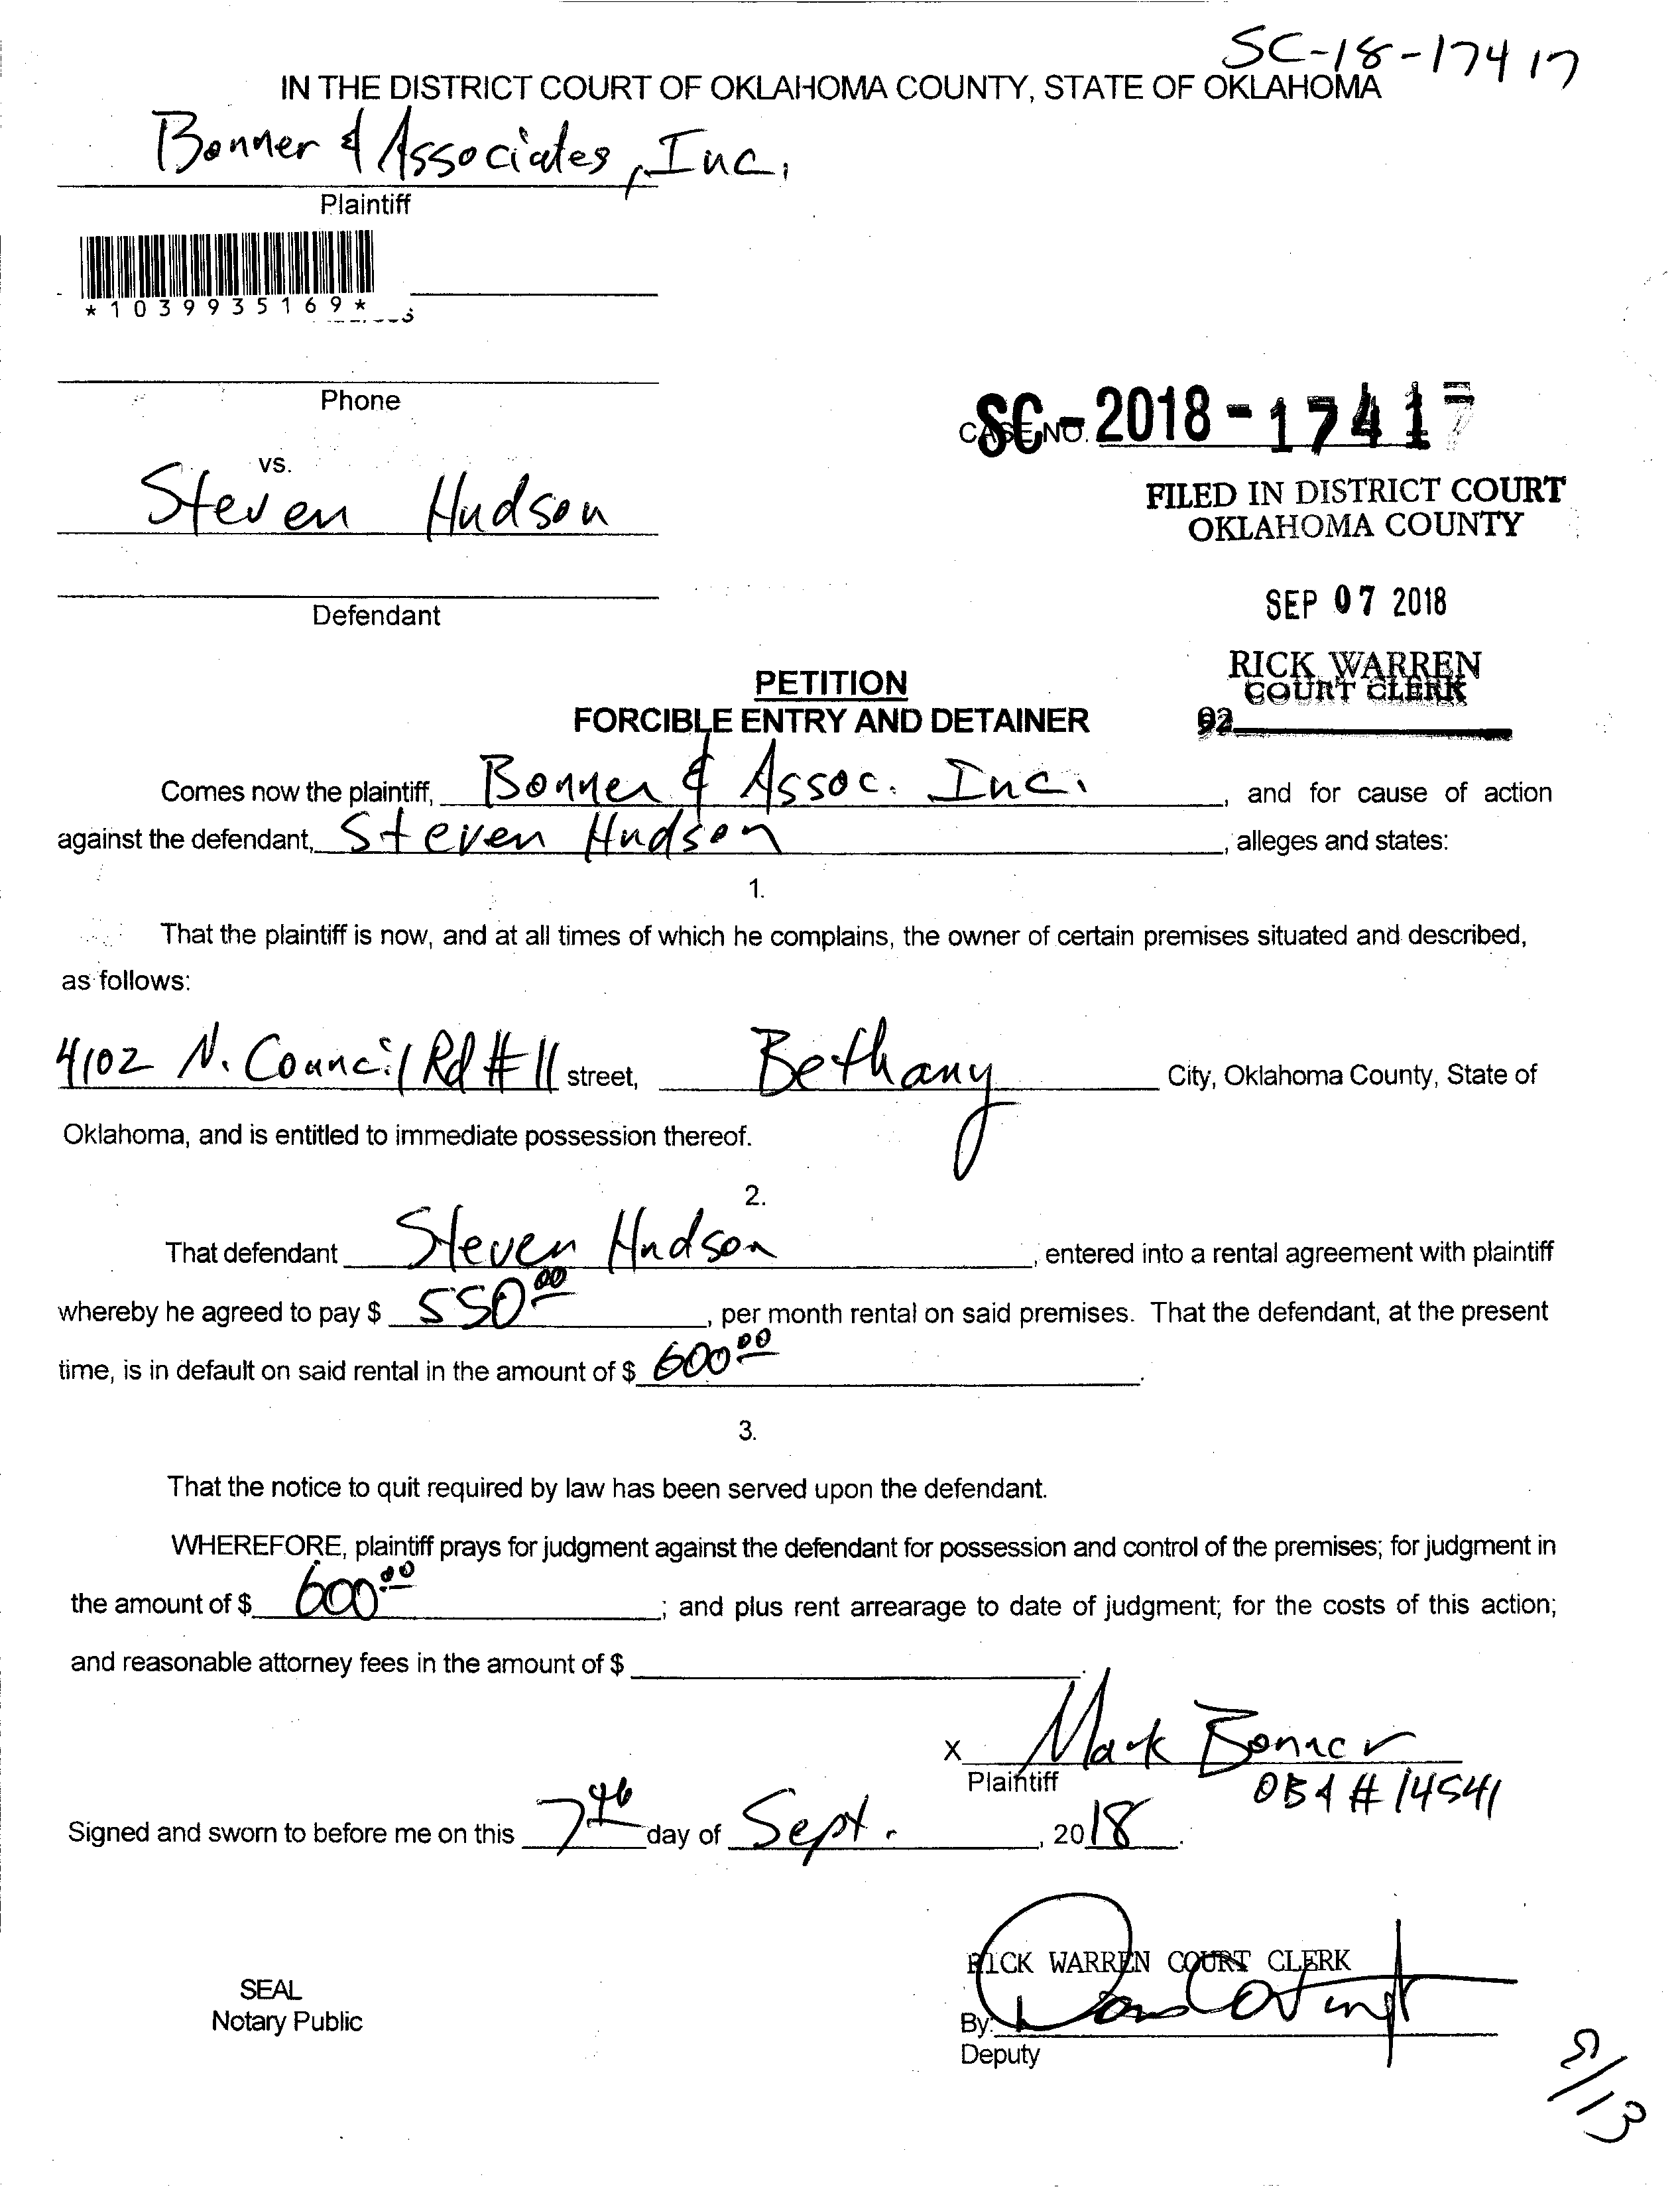 SC-18-17417
IN THE DISTRICT COURT OF OKLAHOMA COUNTY, STATE OF OKLAHOMA
Bonner & Associates, Inc.
Plaintiff
*1039935169*
Phone
CASE NO. SC-2018-17417
vs.
Steven Hudson
FILED IN DISTRICT COURT
OKLAHOMA COUNTY
Defendant
SEP 07 2018
RICK WARREN
COURT CLERK
PETITION
FORCIBLE ENTRY AND DETAINER
Comes now the plaintiff, Bonner & Assoc. Inc. , and for cause of action
against the defendant, Steven Hudson , alleges and states:
1.
That the plaintiff is now, and at all times of which he complains, the owner of certain premises situated and described,
as follows:
4102 N. Council Rd # 11 street, Bethany City, Oklahoma County, State of
Oklahoma, and is entitled to immediate possession thereof.
2.
That defendant Steven Hudson , entered into a rental agreement with plaintiff
whereby he agreed to pay $ 550 00 , per month rental on said premises. That the defendant, at the present
time, is in default on said rental in the amount of $ 600 00 .
3.
That the notice to quit required by law has been served upon the defendant.
WHEREFORE, plaintiff prays for judgment against the defendant for possession and control of the premises; for judgment in
the amount of $ 600 00 ; and plus rent arrearage to date of judgment; for the costs of this action;
and reasonable attorney fees in the amount of $ .
X Mark Bonner
Plaintiff
OBA # 14541
Signed and sworn to before me on this 7th day of Sept. , 2018 .
RICK WARREN COURT CLERK
SEAL
Notary Public
By:
Deputy